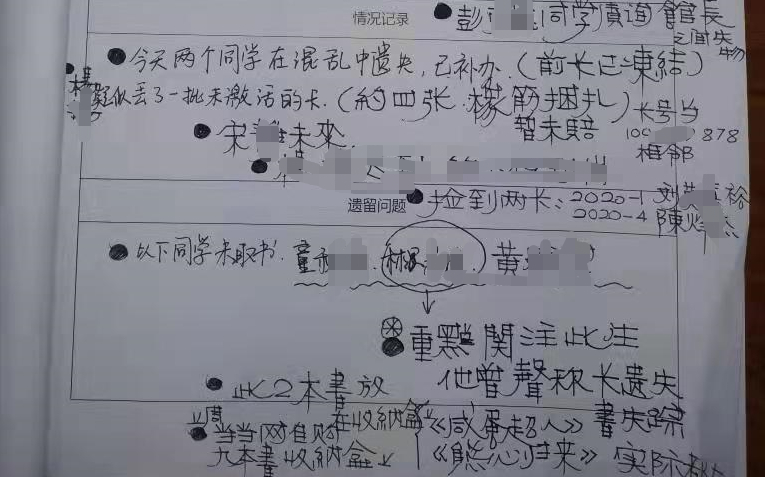 情况记录
● 彭 同学 询 館長
之間失物
● 今天两个同学在混乱中遗失,已补办.(前长已凍結)
● 疑似丢了一批未激活的卡.(約四张.橡筋捆扎)长号当
暂未賠 10 878
● 宋 未來. 相邻
遗留问题 ● 捡到两长:2020-1 刘 裕
2020-4 陳
● 以下同学未取书. 童 . 林 . 黄
● 重點関注此生
● 此2本書放 他曾聲称长遗失
在收納盒 《咸蛋超人》書失踪
● 当当网 购
九本書收納盒↓ 《熊 归来》实际